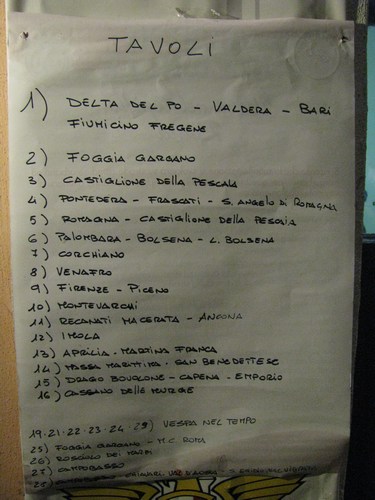 TAVOLI
1) DELTA DEL PO - VALDERA - BARI
FIUMICINO FREGENE
2) FOGGIA GARGANO
3) CASTIGLIONE DELLA PESCAIA
4) PONTEDERA - FRASCATI - S. ANGELO DI ROMAGNA
5) ROMAGNA - CASTIGLIONE DELLA PESCAIA
6) PALOMBARA - BOLSENA - L. BOLSENA
7) CORCHIANO
8) VENAFRO
9) FIRENZE - PICENO
10) MONTEVARCHI
11) RECANATI MACERATA - ANCONA
12) IMOLA
13) APRILIA - MARTINA FRANCA
14) MASSA MARITTIMA - SAN BENEDETTESE
15) DRAGO BOVOLONE - CAPENA - EMPORIO
16) CASSANO DELLE MURGE
19-21-22-23-24-29) VESPA NEL TEMPO
25) FOGGIA GARGANO - M.C. ROMA
26)
27) CAMPOBASSO